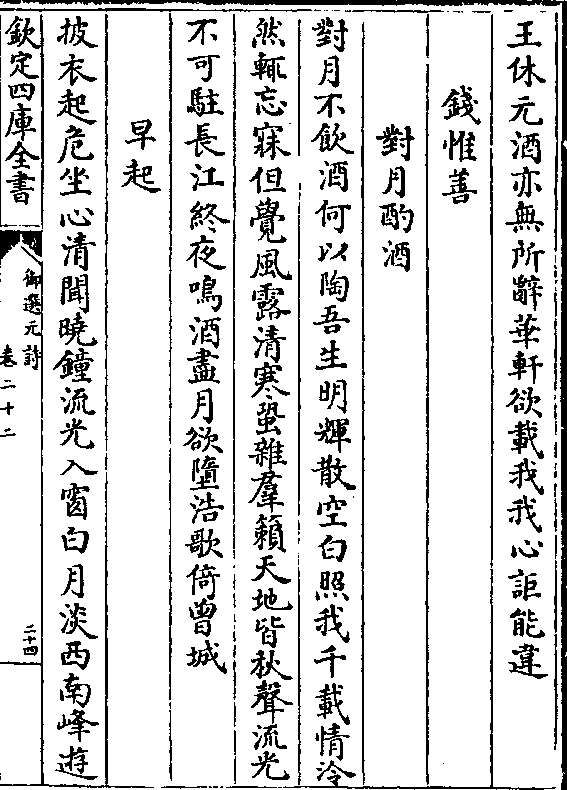 王休元酒亦無所辭華軒欲載我我心詎能違
錢惟善
對月酌酒
對月不飲酒何以陶吾生明輝散空白照我千載情泠
然輒忘寐但覺風露清寒蛩雜羣籟天地皆秋聲流光
不可駐長江終夜鳴酒盡月欲墮浩歌倚曾城
早起
披衣起危坐心清聞曉鐘流光入窗白月淡西南峰遊
欽定四庫全書
御選元詩
卷二十二
二十四